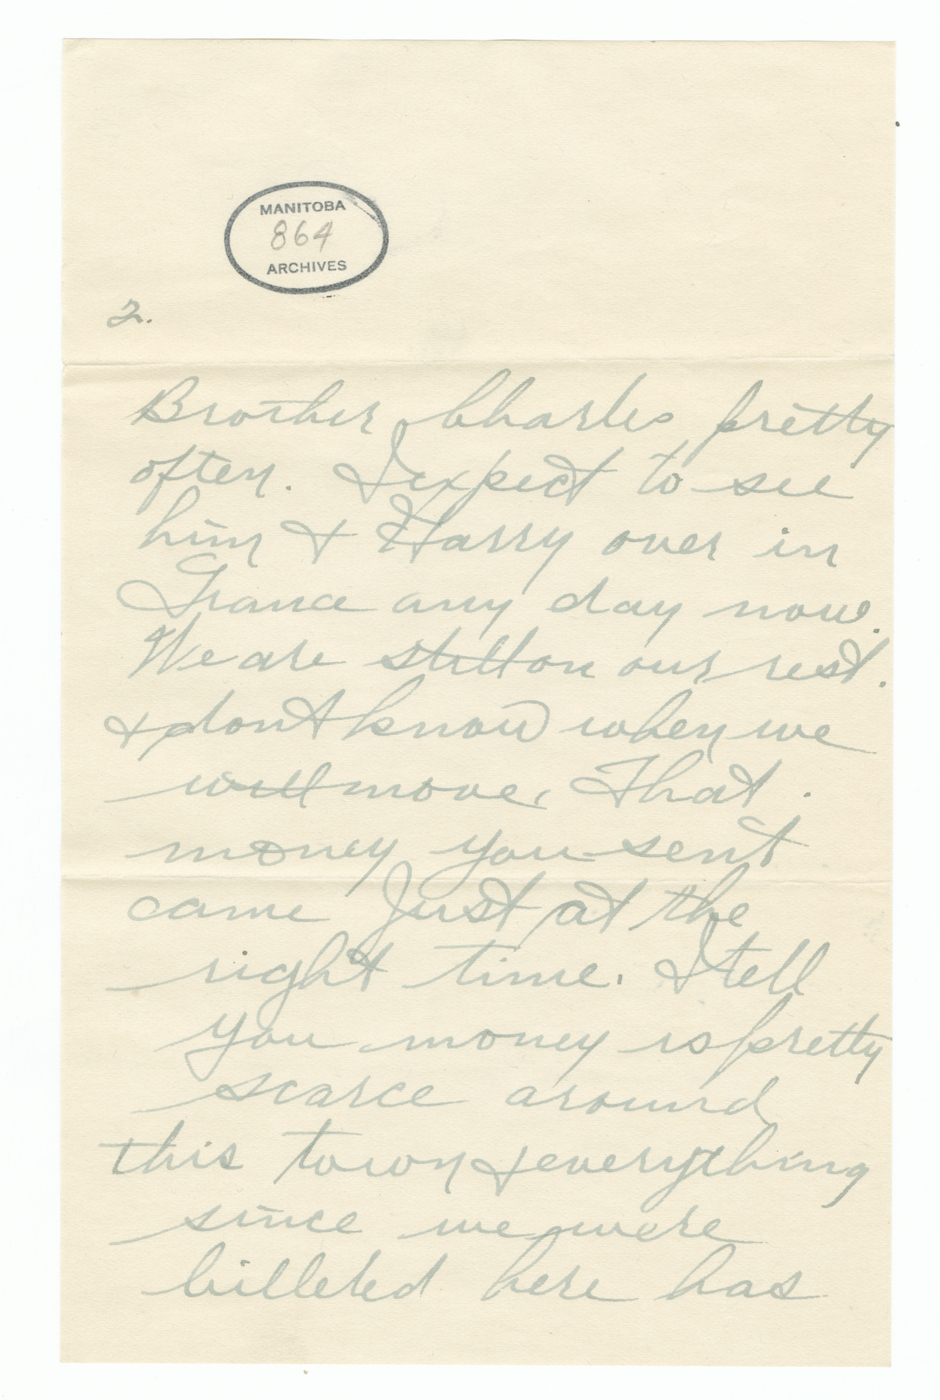 MANITOBA
864
ARCHIVES
2.
Brother Charles pretty
often. I expect to see
him & Harry over in
France any day now.
We are still on our rest.
& dont know when we
will move. That
money you sent
came Just at the
right time. I tell
you money is pretty
scarce around
this town & everything
since we were
billeted here has